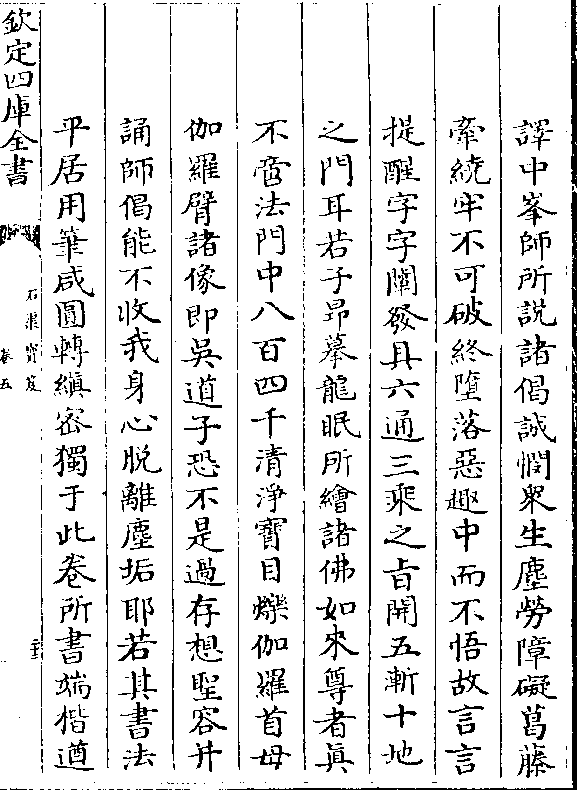 譯中峯師所說諸偈誠憫衆生塵勞障礙葛藤
牽繞牢不可破終墮落惡趣中而不悟故言言
提醒字字闡發具六通三乘之旨開五漸十地
之門耳若子昻摹龍眠所繪諸佛如來尊者眞
不啻法門中八百四千清淨寶目爍伽羅首母
伽羅臂諸像即吳道子恐不是過存想聖容幷
誦師偈能不收我身心脫離塵垢耶若其書法
平居用筆咸圓轉縝密獨于此卷所書端楷遒
欽定四庫全書
石渠寶笈
卷五